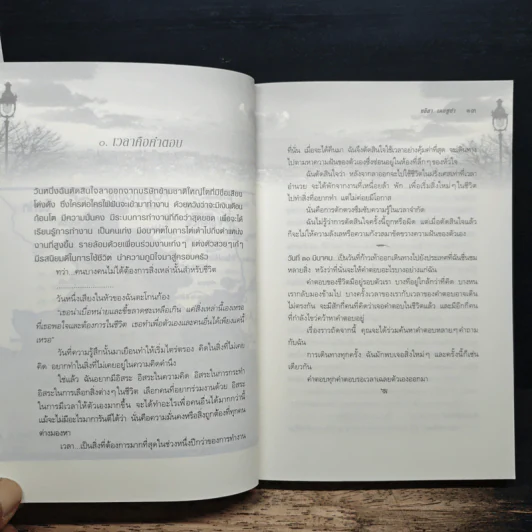 ๑. เวลาคือคำตอบ
วันหนึ่งฉันตัดสินใจลาออกจากบริษัทข้ามชาติใหญ่โตที่มีชื่อเสียง
โด่งดัง ซึ่งใครต่อใครใฝ่ฝันจะเข้ามาทำงาน ด้วยหวังว่าจะมีเงินเดือน
ก้อนโต มีความมั่นคง มีระบบการทำงานที่ถือว่าสุดยอด เพื่อจะได้
เรียนรู้การทำงาน เป็นคนเก่ง มีอนาคตในการไต่เต้าไปถึงตำแหน่ง
งานที่สูงขึ้น รายล้อมด้วยเพื่อนร่วมงานเก่งๆ แต่งตัวสวยๆ เท่ๆ
มีรสนิยมดีในการใช้ชีวิต นำความภูมิใจมาสู่ครอบครัว
ทว่า...คนบางคนไม่ได้ต้องการสิ่งเหล่านั้นสำหรับชีวิต
วันหนึ่งเสียงในหัวของฉันตะโกนก้อง
"เธอน่าเบื่อหน่ายและขี้ขลาดซะเหลือเกิน แค่สิ่งเหล่านี้เองเหรอ
ที่เธอพอใจและต้องการในชีวิต เธอทำเพื่อตัวเองและคนอื่นได้เพียงแค่นี้
เหรอ"
วันที่ความรู้สึกนั้นมาเยือนทำให้เริ่มไตร่ตรอง คิดในสิ่งที่ไม่เคย
คิด อยากทำในสิ่งที่ไม่เคยอยู่ในความคิดคำนึง
ใช่แล้ว ฉันอยากมีอิสระ อิสระในความคิด อิสระในการกระทำ
อิสระในการเลือกสิ่งต่างๆ ในชีวิต เลือกคนที่อยากร่วมงานด้วย อิสระ
ในการมีเวลาให้ตัวเองมากขึ้น จะได้ทำอะไรเพื่อคนอื่นได้มากกว่านี้
แม้จะไม่มีอะไรมาการันตีได้ว่า นั่นคือความมั่นคงหรือสิ่งถูกต้องที่ทุกคน
ต่างมองหา
เวลา...เป็นสิ่งที่ต้องการมากที่สุดในช่วงหนึ่งปีกว่าของการทำงาน
ที่นั่น เมื่อจะได้คืนมา ฉันจึงตัดสินใจใช้เวลาอย่างคุ้มค่าที่สุด จะเดินทาง
ไปตามหาความฝันของตัวเองซึ่งซ่อนอยู่ในห้องที่ลึกๆ ของหัวใจ
ฉันตัดสินใจว่า หลังจากลาออกจะไปใช้ชีวิตในฝรั่งเศสเท่าที่เวลา
อำนวย จะได้พักจากงานที่เหนื่อยล้า พัก...เพื่อเริ่มสิ่งใหม่ๆ ในชีวิต
ไปทำสิ่งที่อยากทำ แต่ไม่ค่อยมีโอกาส
นั่นคือการตักตวงซึมซับความรู้ในเวลาจำกัด
ฉันไม่รู้ว่าการตัดสินใจครั้งนี้ถูกหรือผิด แต่เมื่อตัดสินใจแล้ว
ก็จะไม่ให้ความลังเลหรือความกังวลมาขัดขวางความฝันของตัวเอง
วันที่ ๓๐ มีนาคม...เป็นวันที่ก้าวเท้าออกเดินทางไปยังประเทศที่ฉันชื่นชม
หลายสิ่ง หวังว่าที่นั่นจะให้คำตอบอะไรบางอย่างแก่ฉัน
คำตอบของชีวิตมีอยู่รอบตัวเรา บางทีอยู่ใกล้กว่าที่คิด บางหน
เรากลับมองข้ามไป บางครั้งเวลาของเรากับเวลาของคำตอบอาจเดิน
ไม่ตรงกัน จะมีสักกี่คนที่คิดว่าเจอคำตอบในชีวิตแล้ว และมีอีกกี่คนที่
กำลังไขว่คว้าหาคำตอบอยู่
เรื่องราวถัดจากนี้ คุณจะได้ร่วมค้นหาคำตอบหลายๆ คำถามกับ
ฉัน
การเดินทางทุกครั้ง ฉันมักพบเจอสิ่งใหม่ๆ และครั้งนี้ก็เช่น
เดียวกัน
คำตอบทุกคำตอบรอเวลาเผยตัวเองออกมา